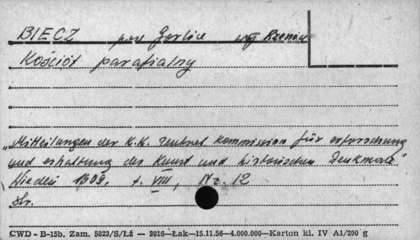 BIECZ pow Gorlice woj Rzeszów
Kościół parafialny
„Mitteilungen der K.K. Zentral Kommission für erforschung
und erhaltung der Kunst und historischen Denkmale"
Wiedeń 1909, t. VIII, Nr. 12
str.
CWD - B-15b. Zam. 5823/S/Łż — 3016—Łak—15.11.56—4.000.000—Karton kl. IV A1/200 g